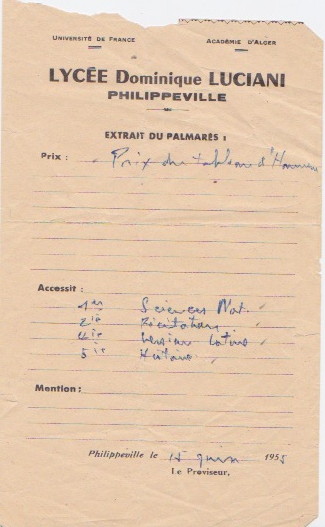 UNIVERSITÉ DE FRANCE ACADÉMIE D'ALGER
LYCÉE Dominique LUCIANI
PHILIPPEVILLE
EXTRAIT DU PALMARÈS :
Prix : Prix du tableau d'Honneur
Accessit :
1er Sciences Nat.
2ie Récitation
4ie Version latine
5ie Histoire
Mention :
Philippeville le 15 juin 1955
Le Proviseur,